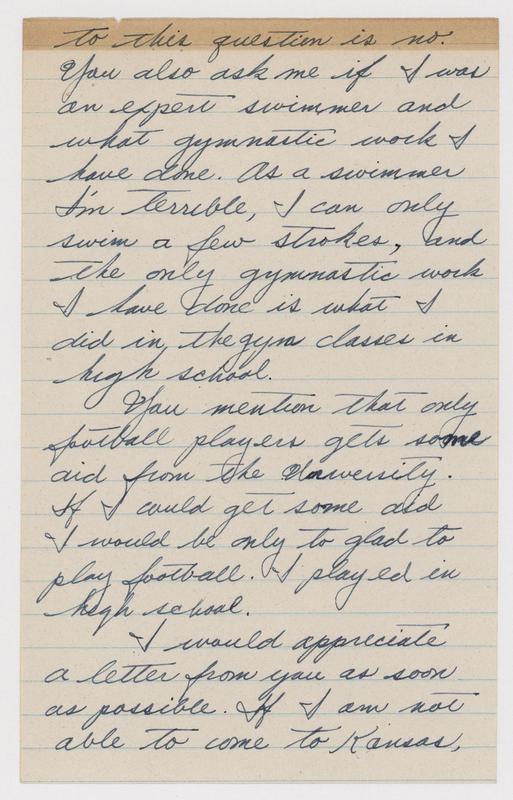 to this question is no.
You also ask me if I was
an expert swimmer and
what gymnastic work I
have done. As a swimmer
I'm terrible, I can only
swim a few strokes, and
the only gymnastic work
I have done is what I
did in the gym classes in
high school.
You mention that only
football players gets some
aid from the University.
If I could get some aid
I would be only to glad to
play football. I played in
high school.
I would appreciate
a letter from you as soon
as possible. If I am not
able to come to Kansas,